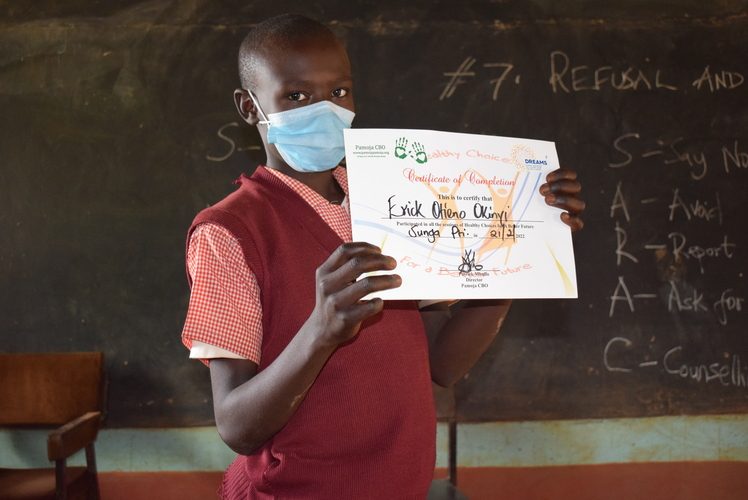 #7. REFUSAL AND
S
S - Say No
A - Avoid
R - Report
A - Ask for
C - Counsell
Pamoja CBO
www.pamojapamoja.org
Healthy Choices
DREAMS
Certificate of Completion
This is to certify that
Erick Otieno Okinyi
Participated in all the sessions of Healthy Choices for A Better Future
Junga Pri. 21/2/2022
For a Better Future
Director
Pamoja CBO